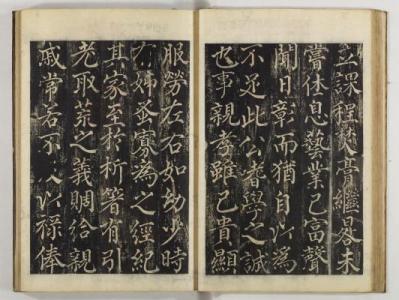 立課程焚膏繼晷未
嘗休息藝業已富聲
聞日彰而猶自以為
不足此公嗜學之誠
也事親孝雖已貴顯
服勞左右如幼少時
有姊蚤寡為之經紀
其家至於析箸有引
老取荒之義賙給親
戚常若不及以祿俸